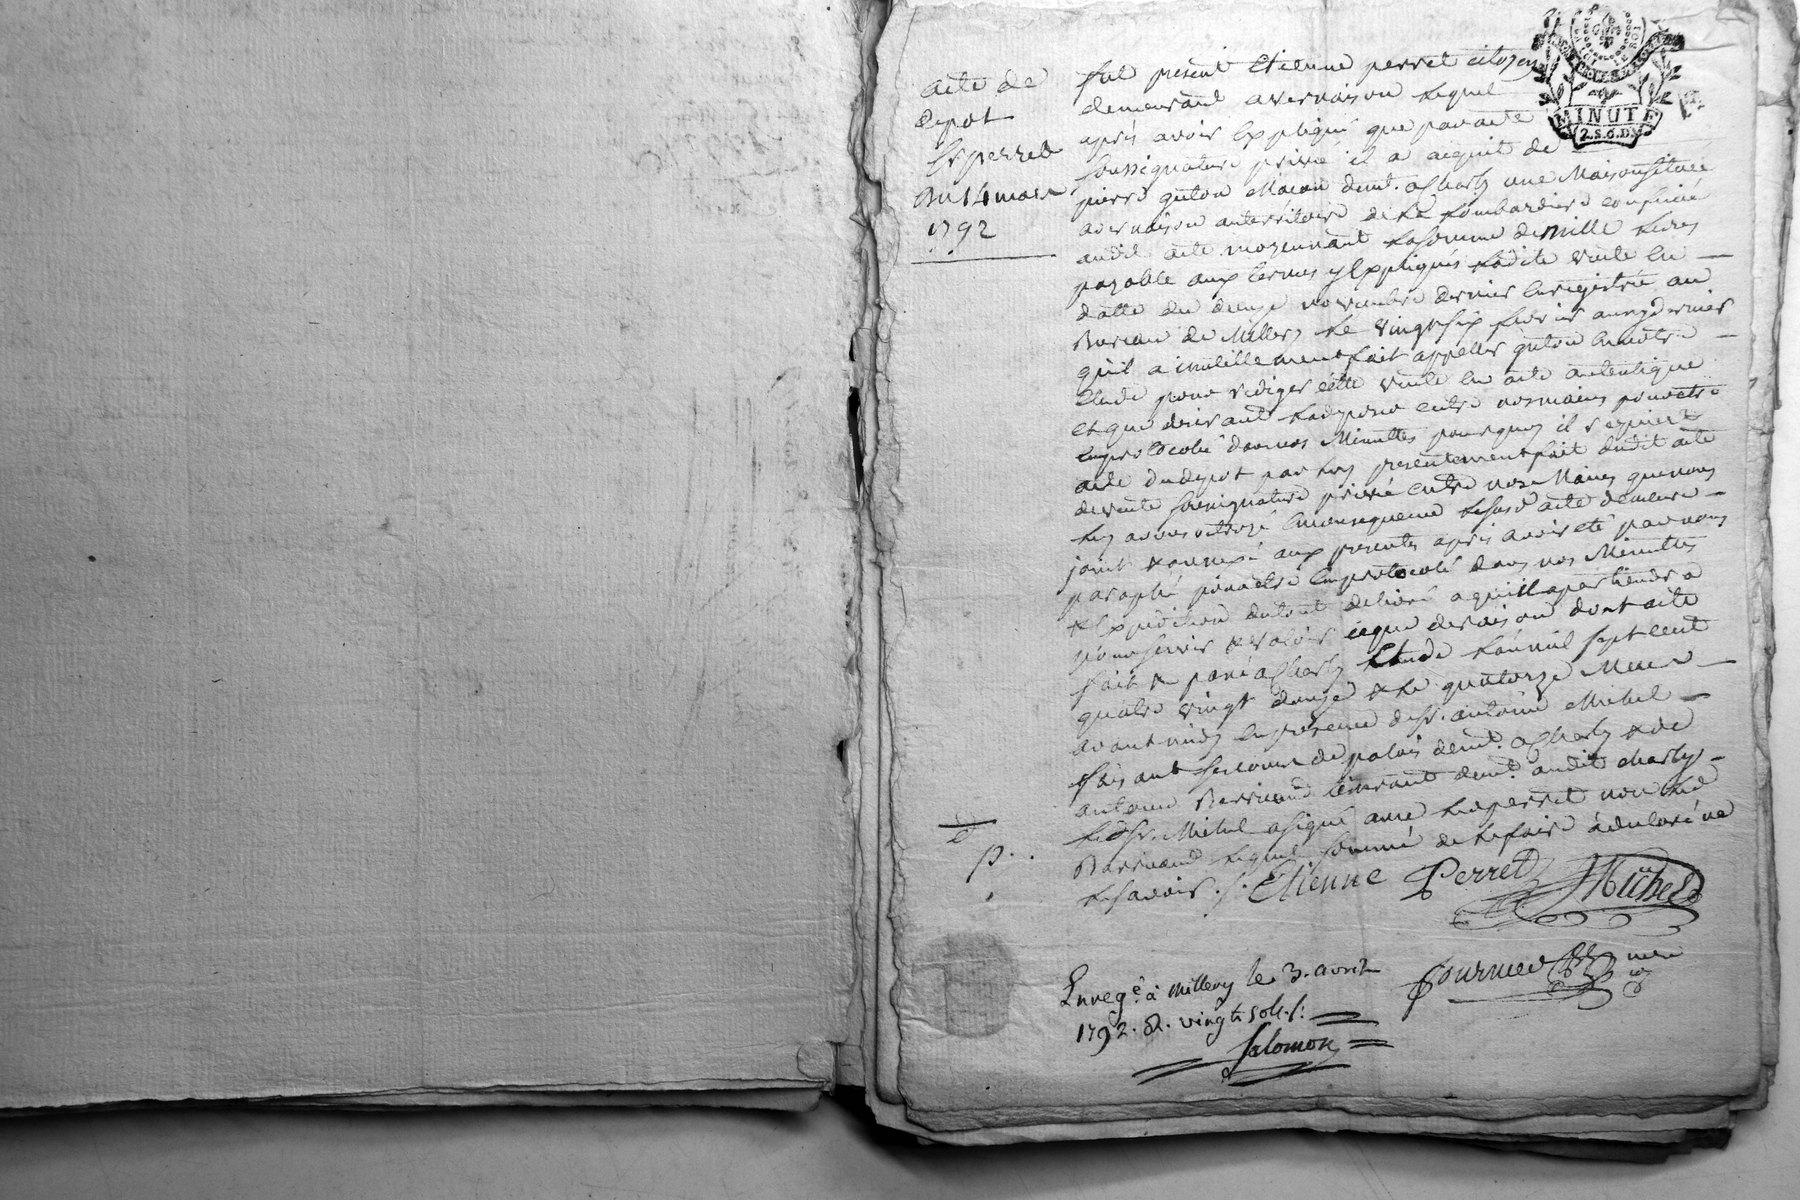 acte de
depot
Sr perret
Du 14 mars
1792
MINUTE
2.S.6.D
fut présent Etienne perret citoyen
demeurant a vernaison lequel
après avoir Expliqué que par acte
soussignature privée il a acquit de
pierre guton Macon demt. a Charly une Maison située
a vernaison au territoire de La Lombardiere confinée
audit acte moyennant la somme de Mille Livres
payable aux termes y Expliqués Ladite vente en
datte du douze novembre dernier Enregistrée au
Bureau de Millery Le vingt six fevrier aussy dernier
qu'il a inutillement fait appeller guton En notre
Etude pour rediger cette vente En acte autentique
et que desirant La deposer entre nos mains pour etre
Emprotocolé dans nos Minuttes pourquoy il requiert
acte du depot par Luy presentement fait dudit acte
de vente sousignature privée entre nos Mains que nous
Luy avons octroyé En consequence Le susd. acte demeure
joint & annexé aux presentes après avoir été par nous
paraphé pour etre Emprotocolé dans nos Minuttes
& Expedition du tout delivré a qu'il apartiendra
pour servir & valoir ce que de raison dont acte
fait & passé a Charly Etude L'an mil sept cent
quatre vingt douze & Le quatorze Mars
avant midy En presence de sr. antoine Michel
fils ant. La Come de palais demt. a Charly & de
antoine Barriand demt. audit charly
Ledsr. Michel a signé avec Led perret non Led
Barriand Lequel sommé de Le faire a declaré ne
Le savoir. /. Etienne Perret Michel
D
p.
Fournier
Enregé. à Millery le 3. avril
1792. R. vingt sols /:
Salomon